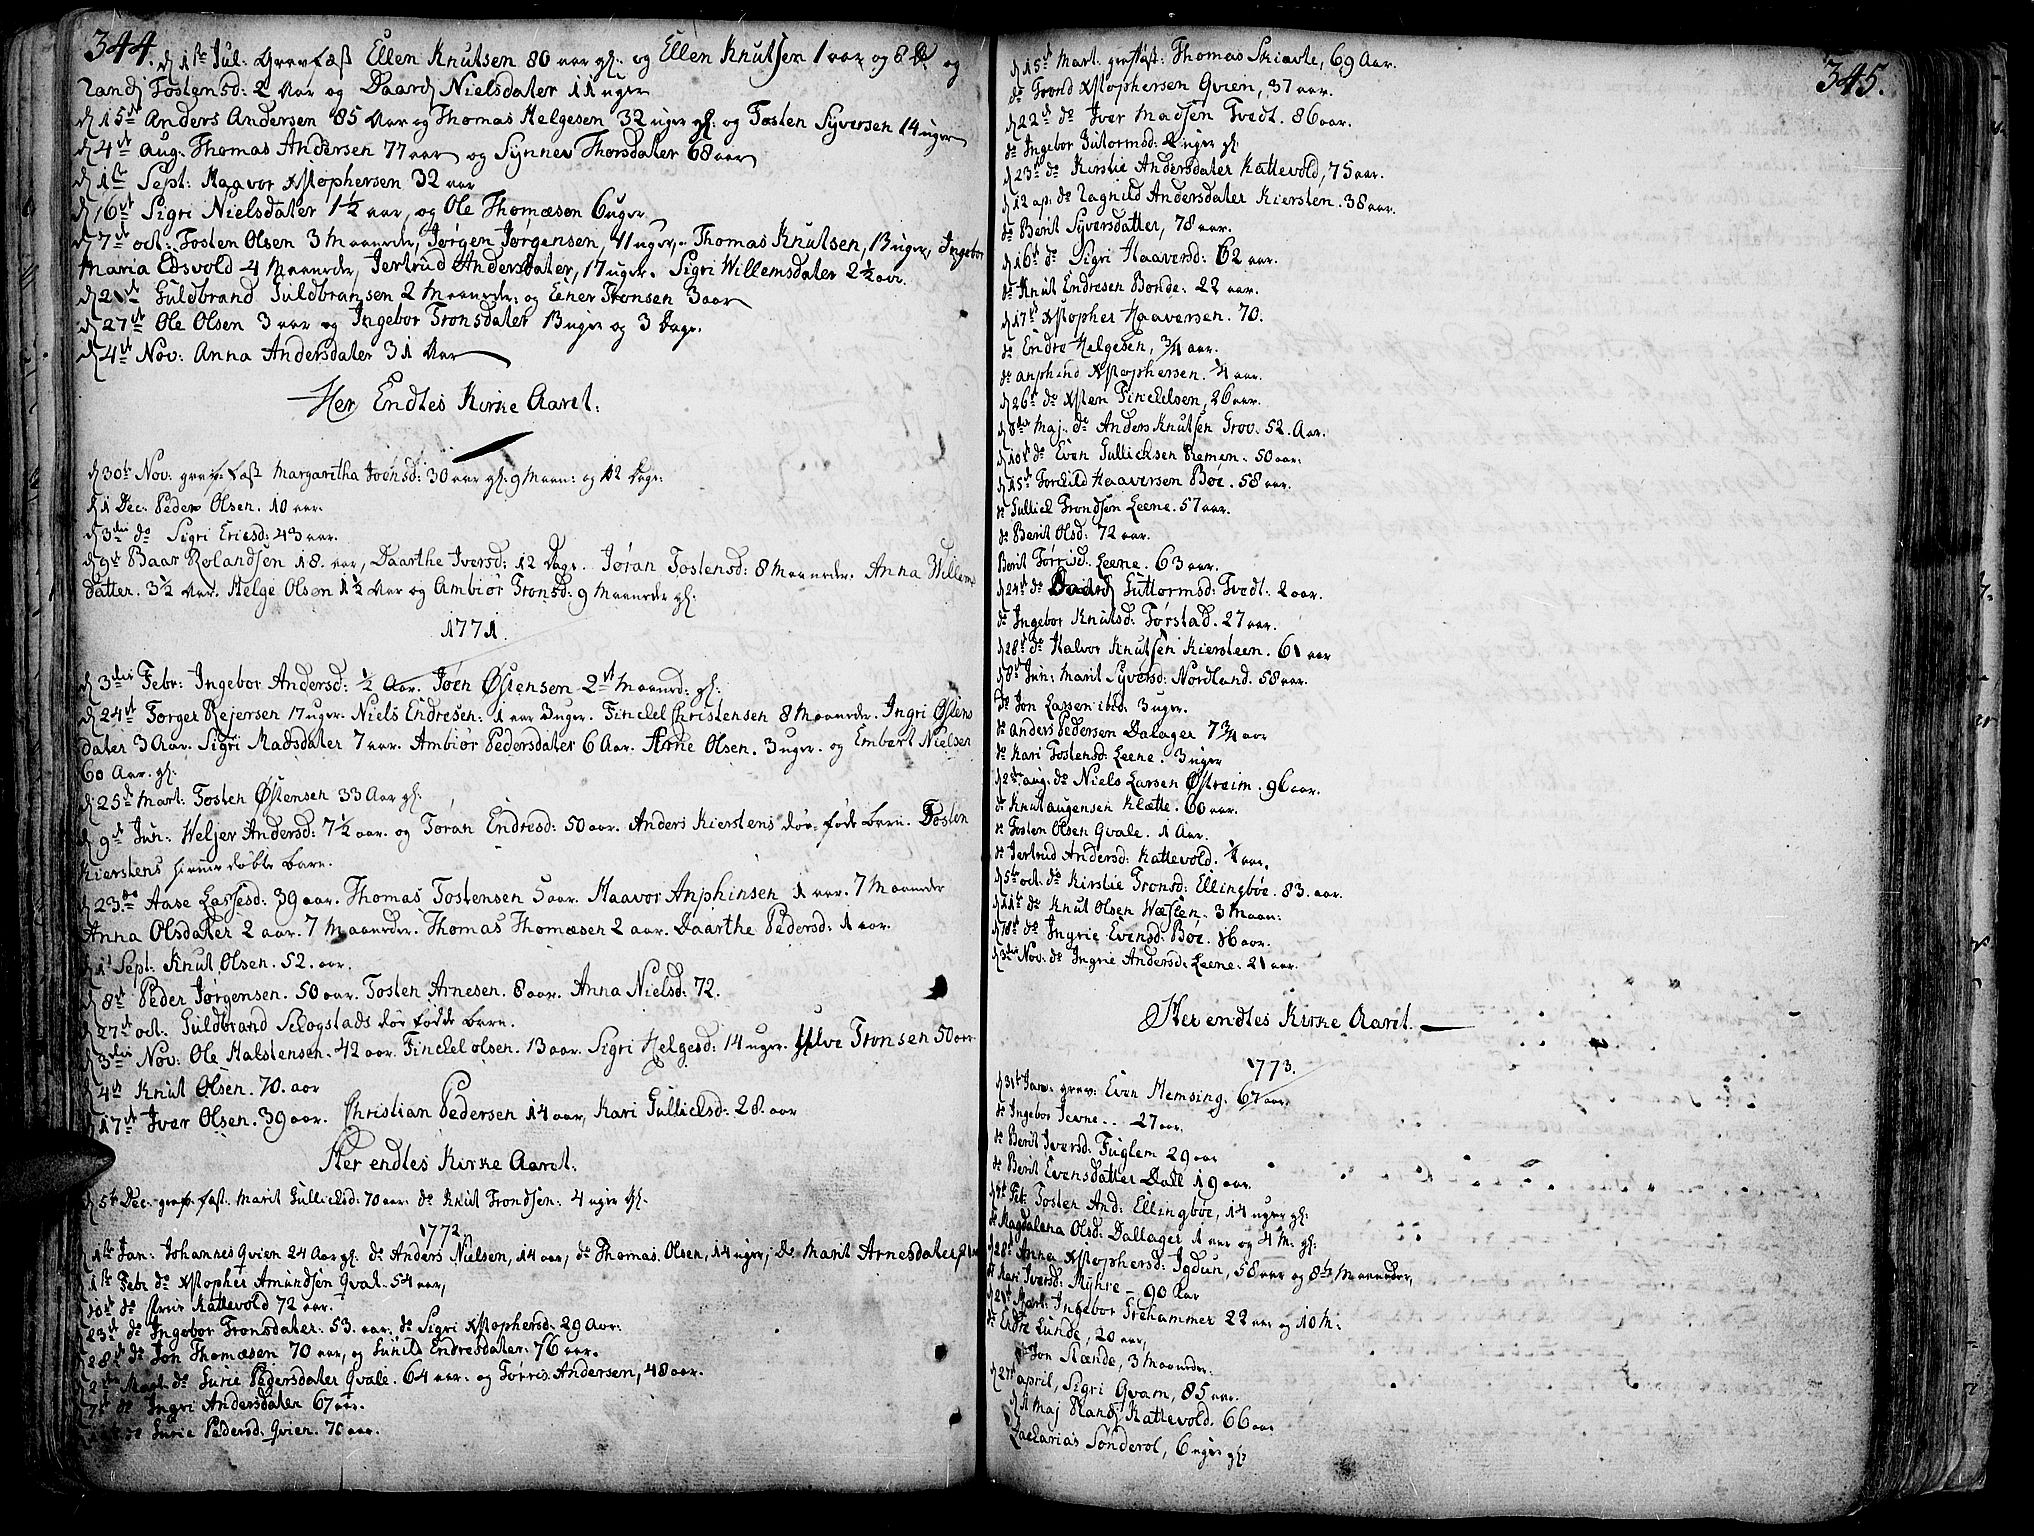 344.
d 1ste Jul: Gravfæst Ellen Knutsen 80 aar gl: og Ellen Knutsen 1 aar og 6 og
Randj Tostensd: 2 Aar og Daardj Nielsdater 11 uger
d 15de Anders Andersen 85 Aar og Thomas Helgesen 32 uger gl: og Tosten Syversen 14 uger
d 4de Aug: Thomas Andersen 77 aar og Synnev Thorsdater 68 aar
d 1ste Sept: Haavor Xstophersen 32 aar
d 16de Sigri Nielsdater 1½ aar, og Ole Thomæsen 6 uger
d 7de oct: Tosten Olsen 3 Maaneder, Jørgen Jørgensen, 41 uger, Thomas Knutsen, 13 uger, Ingebor
Maria Edsvold 4 Maaneder, Jertrud Andersdater, 17 uger. Sigri Willemsdater 2½ aar.
d 21de Guldbrand Guldbransen 2 Maaneder: og Einer Tronsen 3 aar
d 27de Ole Olsen 3 aar og Ingebor Tronsdater 13 uger og 3 Dage.
d 4de Nov: Anna Andersdater 31 Aar
Her Endtes Kirke Aaret.
d 30te Nov: gravfæst Margaritha Joensd: 30 aar gl: 9 Maan: og 12 Dage:
d 1 Dec: Peder Olsen. 10 aar.
d 3die do Sigri Ericsd: 43 aar.
d 9de Baar Rolandsen 18. aar, Daarthe Iversd: 12 Dage. Jøran Tostensd: 8 Maaneder. Anna Willems
datter. 3½ Aar. Helge Olsen 1½ Aar og Ambiør Tronsd: 9 Maaneder gl:
1771.
d 3die Febr: Ingebor Andersd: ½ Aar. Joen Østensen 2 Maaned: gl:
d 24de Torger Rejersen 17 uger. Niels Endresen: 1 aar 3 uger. Finckel Christensen 8 Maaneder. Ingri Østens
dater 3 Aar. Sigri Madsdater 7 aar. Ambiør Pedersdater 6 Aar. Arne Olsen. 3 uger. og Embert Nielsen
60 Aar. gl:
d 25de Mart: Tosten Østensen 33 Aar gl:
d 9de Jun: Heljer Andersd: 7½ aar. og Jøran Endresd: 50 aar. Anders Kierstens død føde barn. Tosten
Kierstens hiemedøbte barn.
d 23de Aase Lassesd: 39 aar. Thomas Tostensen 5 aar. Haavor Anphinsen 1 aar. 7 Maaneder
Anna Olsdater 2 aar. 7 Maaneder. Thomas Thomæsen 2 aar. Daarthe Pedersd: 1 aar.
d 1 Sept: Knut Olsen. 52. aar.
d 8de Peder Jørgensen. 50 aar. Tosten Arnesen. 8 aar. Anna Nielsd: 72.
d 27de oct: Guldbrand Schogstads død fødde barn.
d 3die Nov: Ole Halstensen. 42 aar. Finckel olsen. 13 aar. Sigri Helgesd: 14 uger. Hylve Tronsen 50 aar
d 4de Knut Olsen. 70. aar
d 17de Iver Olsen. 39 aar. Christian Pedersen 14 aar, Kari Gullicksd: 28. aar
Her endtes Kirke Aaret.
d 5te Dec: grafæst. Marit Gullicksd: 70 aar. do Knut Trondsen. 4 uger gl:
1772.
d 1ste Jan: Johannes Qvien 24 Aar gl: do Anders Nielsen, 14 aar, do Thomas Olsen, 14 uger, do Marit Arnesdater,
d 1ste Febr do Xstopher Amundsen Qval. 54 aar,
d 10de do Kattevold 72 aar.
d 23de do Ingebor Tronsdater: 53. aar. do Sigri Xstophersd: 29 Aar.
d 28de do Jon Thomæsen 70 aar, og Gunild Endresdater: 76 aar.
d 2den Mart: do Gurie Pedersdater Qvale. 64 aar. og Tørris Andersen, 48 aar.
d 7de do Ingri Andersdater 67 aar.
do Gurie Pedersd: Qvien. 70 aar.
345.
d 15de Mart: grafæst: Thomas Skiavte, 69 Aar.
do Trond Xstophersen Qvien, 37 aar.
d 22de do Iver Madsen Tvedt. 86 aar.
do Ingebor Gutormsd: 2 uger gl:
d 23de do Kirstie Andersdater Kattevold, 75 aar.
d 12 ap: do Ragnild Andersdater Kiersten. 38 aar.
do Berit Syversdatter, 78 aar.
d 16de do Sigri Haaversd: 62 aar.
do Knut Endresen Bonde: 22 aar.
d 17de Xstopher Haaversen. 70.
do Endre Helgesen, ¾ aar.
do Anphind Xstophersen. ¾ aar.
d 26de do Xsten Finckelsen, 26 aar.
d 8de Maj: do Anders Knutsen Trøv. 52. Aar.
d 10de do Even Gullicksen Remen. 50 aar:
d 15de Torchild Haaversen Bøe. 58 aar.
do Gullick Trondsen Leene. 57 aar.
do Berit Olsd: 72 aar.
Berit Tørrisd. Leene. 63 aar.
d 24de do Daardj Guttormsd: Tvedt: 2 aar.
do Ingebor Knutsd: Førstad. 27 aar.
d 28de do Halvor Knutsen Kiersteen. 61 aar
d 8de Jun: Marit Syversd: Nordland. 58 aar.
do Jon Larsen ibid: 3 uger.
do Anders Pedersen Dalager 7¾ aar
do Kari Tostensd: Leene. 3 uger
d 2den aug: do Niels Larsen Østreim. 96 aar.
do Knut augensen Klætte. 60 aar.
do Tosten Olsen Qvale. 1 Aar.
do Jertrud Andersd: Kattevold. ¼ aar.
d 5te oct: do Kirstie Tronsd: Ellingbøe. 83. aar.
d 11te do Knut Olsen Wæsten. 3 Maan:
d 18de do Ingrie Evensd: Bøe. 16 aar.
d 3die Nov: do Ingrie Andersd: Leene: 21 aar.
Her endtes Kirke Aaret.
1773.
d 31te Jan: grav: Even Hemsing. 67 aar.
do Ingebor Jevne.. 27 aar.
do Berit Iversd: Fuglem 29 aar
do Berit Evensdatter Dale 19 aar.
Feb: Tosten And: Ellingbøe, 14 uger gl:
do Magdalena Olsd: Dallager 1 aar og 4 M: gl:
d 28de Anna Xstophersd: Igdun, 58 aar og 8½ Maaneder,
do Kari Iversd: Myhre - 90 Aar
d 21de Mart: Ingebor Grehammer 22 aar og 10 M:
do Endre Lunde, 20 aar,
do Jon Stænde, 3 Maaneder.
d 27 april, Sigri Qvam, 85 aar.
d 1 Maj Randj Kattevold. 66 aar
Zacharias Sønderol, 6 uger gl: